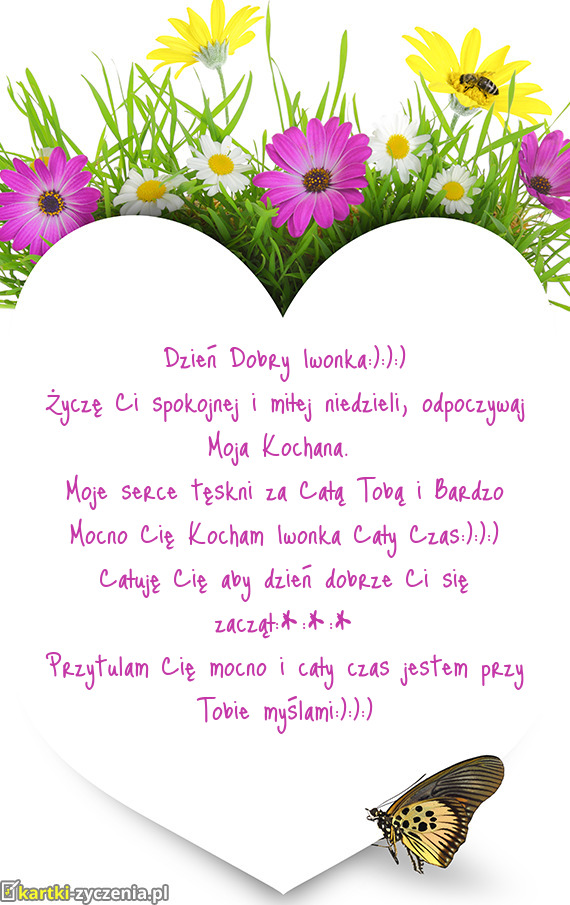 Dzień Dobry Iwonka:):):)
Życzę Ci spokojnej i miłej niedzieli, odpoczywaj
Moja Kochana.
Moje serce tęskni za Całą Tobą i Bardzo
Mocno Cię Kocham Iwonka Cały Czas:):):)
Całuję Cię aby dzień dobrze Ci się
zaczął:*:*:*
Przytulam Cię mocno i cały czas jestem przy
Tobie myślami:):):)
kartki-zyczenia.pl